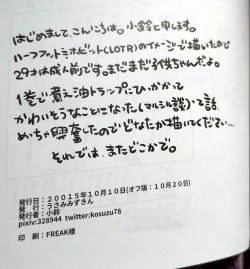 はじめまして、こんにちは。小鈴と申します。
ハーフフットミホビット(LOTR)のイメージで描いたので
29才は成人前です。まだまだ子供ちゃんだよ。
1巻で煮え油トラップにひっかかって
かわいそうなことになった(マルシル談)て話、
めっちゃ興奮したのでどなたか描いてください…
それでは、またどこかで。
発行日:20015年10月10日(オフ版:10月20日)
発 行:うさみみずきん
発行者:小鈴
pixiv:328944 twitter:kosuzu78
印 刷:FREAK様